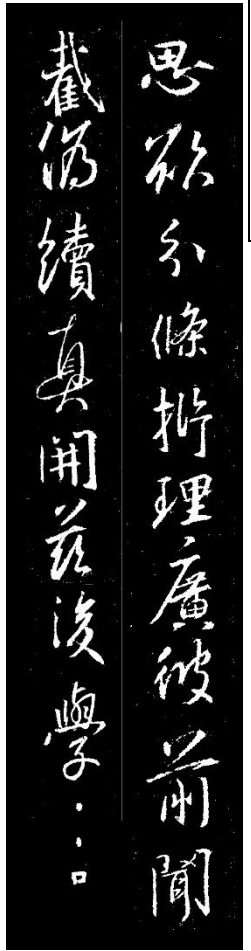 思欲分條析理廣彼前聞
截偽續真開茲後學